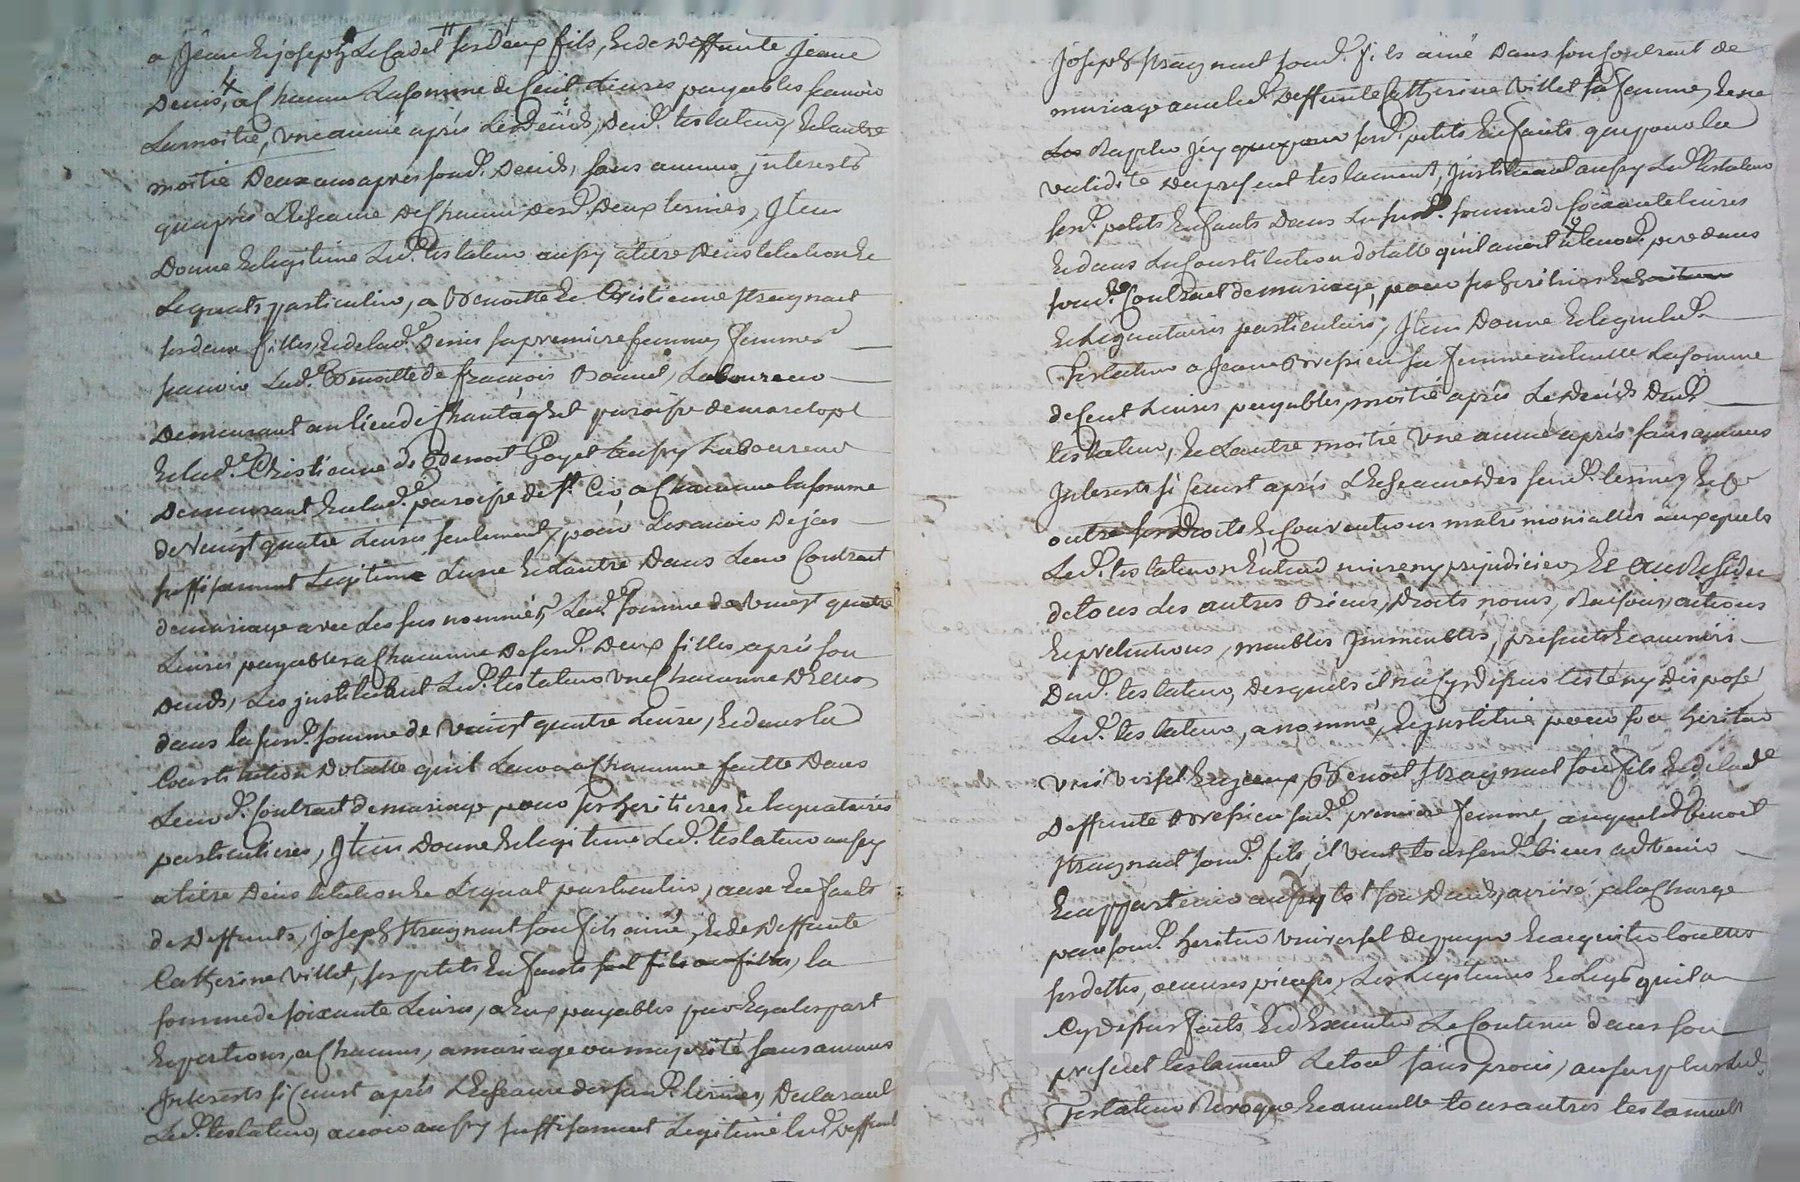 a Jean & joseph Le Cadet ses deux fils, & de deffunte Jeane
Denis, a chacun La somme de Cent Livres payables scavoir
La moitié, une année après Le deceds dud. testateur, & l'autre
moitié deux ans après sond. deceds, sans aucuns interests
qu'après L'escheance de chacun desd. deux termes, Item
Donne & legitime Led. testateur aussy a titre d'institution &
Legat particulier, a Benoitte & Cristienne stragnart
ses deux filles, & de lad. Denis sa premiere femme, femmes
scavoir Lad. Benoitte de francois Bonnet, Laboureur
Demeurant au lieu de Chantagret paroisse de marclopt
& lad. Christienne de Benoit Goyet aussy Laboureur
Demeurant en lad. paroisse de st. Cir a chacune la somme
de Vingt quatre Livres seulement, pour Les avoir Dejas
suffisament Legitimé L'une & L'autre Dans Leur Contract
de mariage avec Les sus nommés, Lad. somme de Vingt quatre
Livres payables a chacune de sesd. Deux filles, après son
Deceds, Les instituant Led. testateur une chacune d'Elles
dans la susd. somme de Vingt quatre Livres, & dans la
Constitution dotalle qu'il Leur a a chacune faitte Dans
Leurd. Contract de mariage pour ses heritieres & leguataires
particulieres, Item Donne & legitime Led. testateur aussy
a titre d'institution & Legat particulier, aux Enfants
de deffunts, Joseph stragnart son fils ainé, & de deffunte
Catherine Villet, ses petits Enfants sept fils ou filles, la
somme de soixante Livres, a Eux payables par Egales part
& portions, a chacuns, a mariage ou majorité sans aucuns
Interests si Ce n'est après L'escheance desd. termes, Declarant
Led. testateur, avoir aussy suffisament Legitimé lud. deffunt
Joseph stragnart sond. fils ainé Dans son Contract de
mariage avec lad. Deffunte Catherine Villet sa femme, & ne
Les Rapeler icy que pour sesd. petits Enfants que pour la
validité du present testament, Instituant aussy Led. testateur
sesd. petits Enfants Dans La susd. somme de soixante livres
& dans La Constitution dotalle qu'il avoit à leurd. pere dans
sond. Contract de mariage, pour ses heritiers
& leguataires particuliers, Item Donne & legue Led.
Testateur a Jeane Brefsieu sa femme actuelle La somme
de Cent Livres payables, moitié après Le deceds dud.
testateur, & L'autre moitié une année après sans aucuns
Interests si Ce n'est après L'escheance des susd. termes, & Ce
outre ses Droits & Conventions matrimonialles auxquels
Led. testateur n'entend nuire ny prejudicier, & au Residu
de tous Les autres Biens, Droits, noms, Raisons, actions
& pretentions, meubles Immeubles, presents & avenirs
Dud. testateur, desquels il n'a cy dessus testé ny disposé
Led. testateur, a nommé, & institué pour son heritier
universel & general Benoit stragnart son fils & de lad.
Deffunte sad. premiere femme, auquel d. Benoit
stragnart sond. fils il veut tous sesd. biens advenir
& appartenir aussy tôt son deceds arrivé, a la Charge
par sond. heritier universel de payer & acquiter touttes
ses dettes, Les Legitimes & Legs qu'il a
Cy dessus faits, & d'Executer Le Contenu dans son
present testament Le tout sans procès, au surplus Led.
Testateur Revoque & annulle tous autres testaments